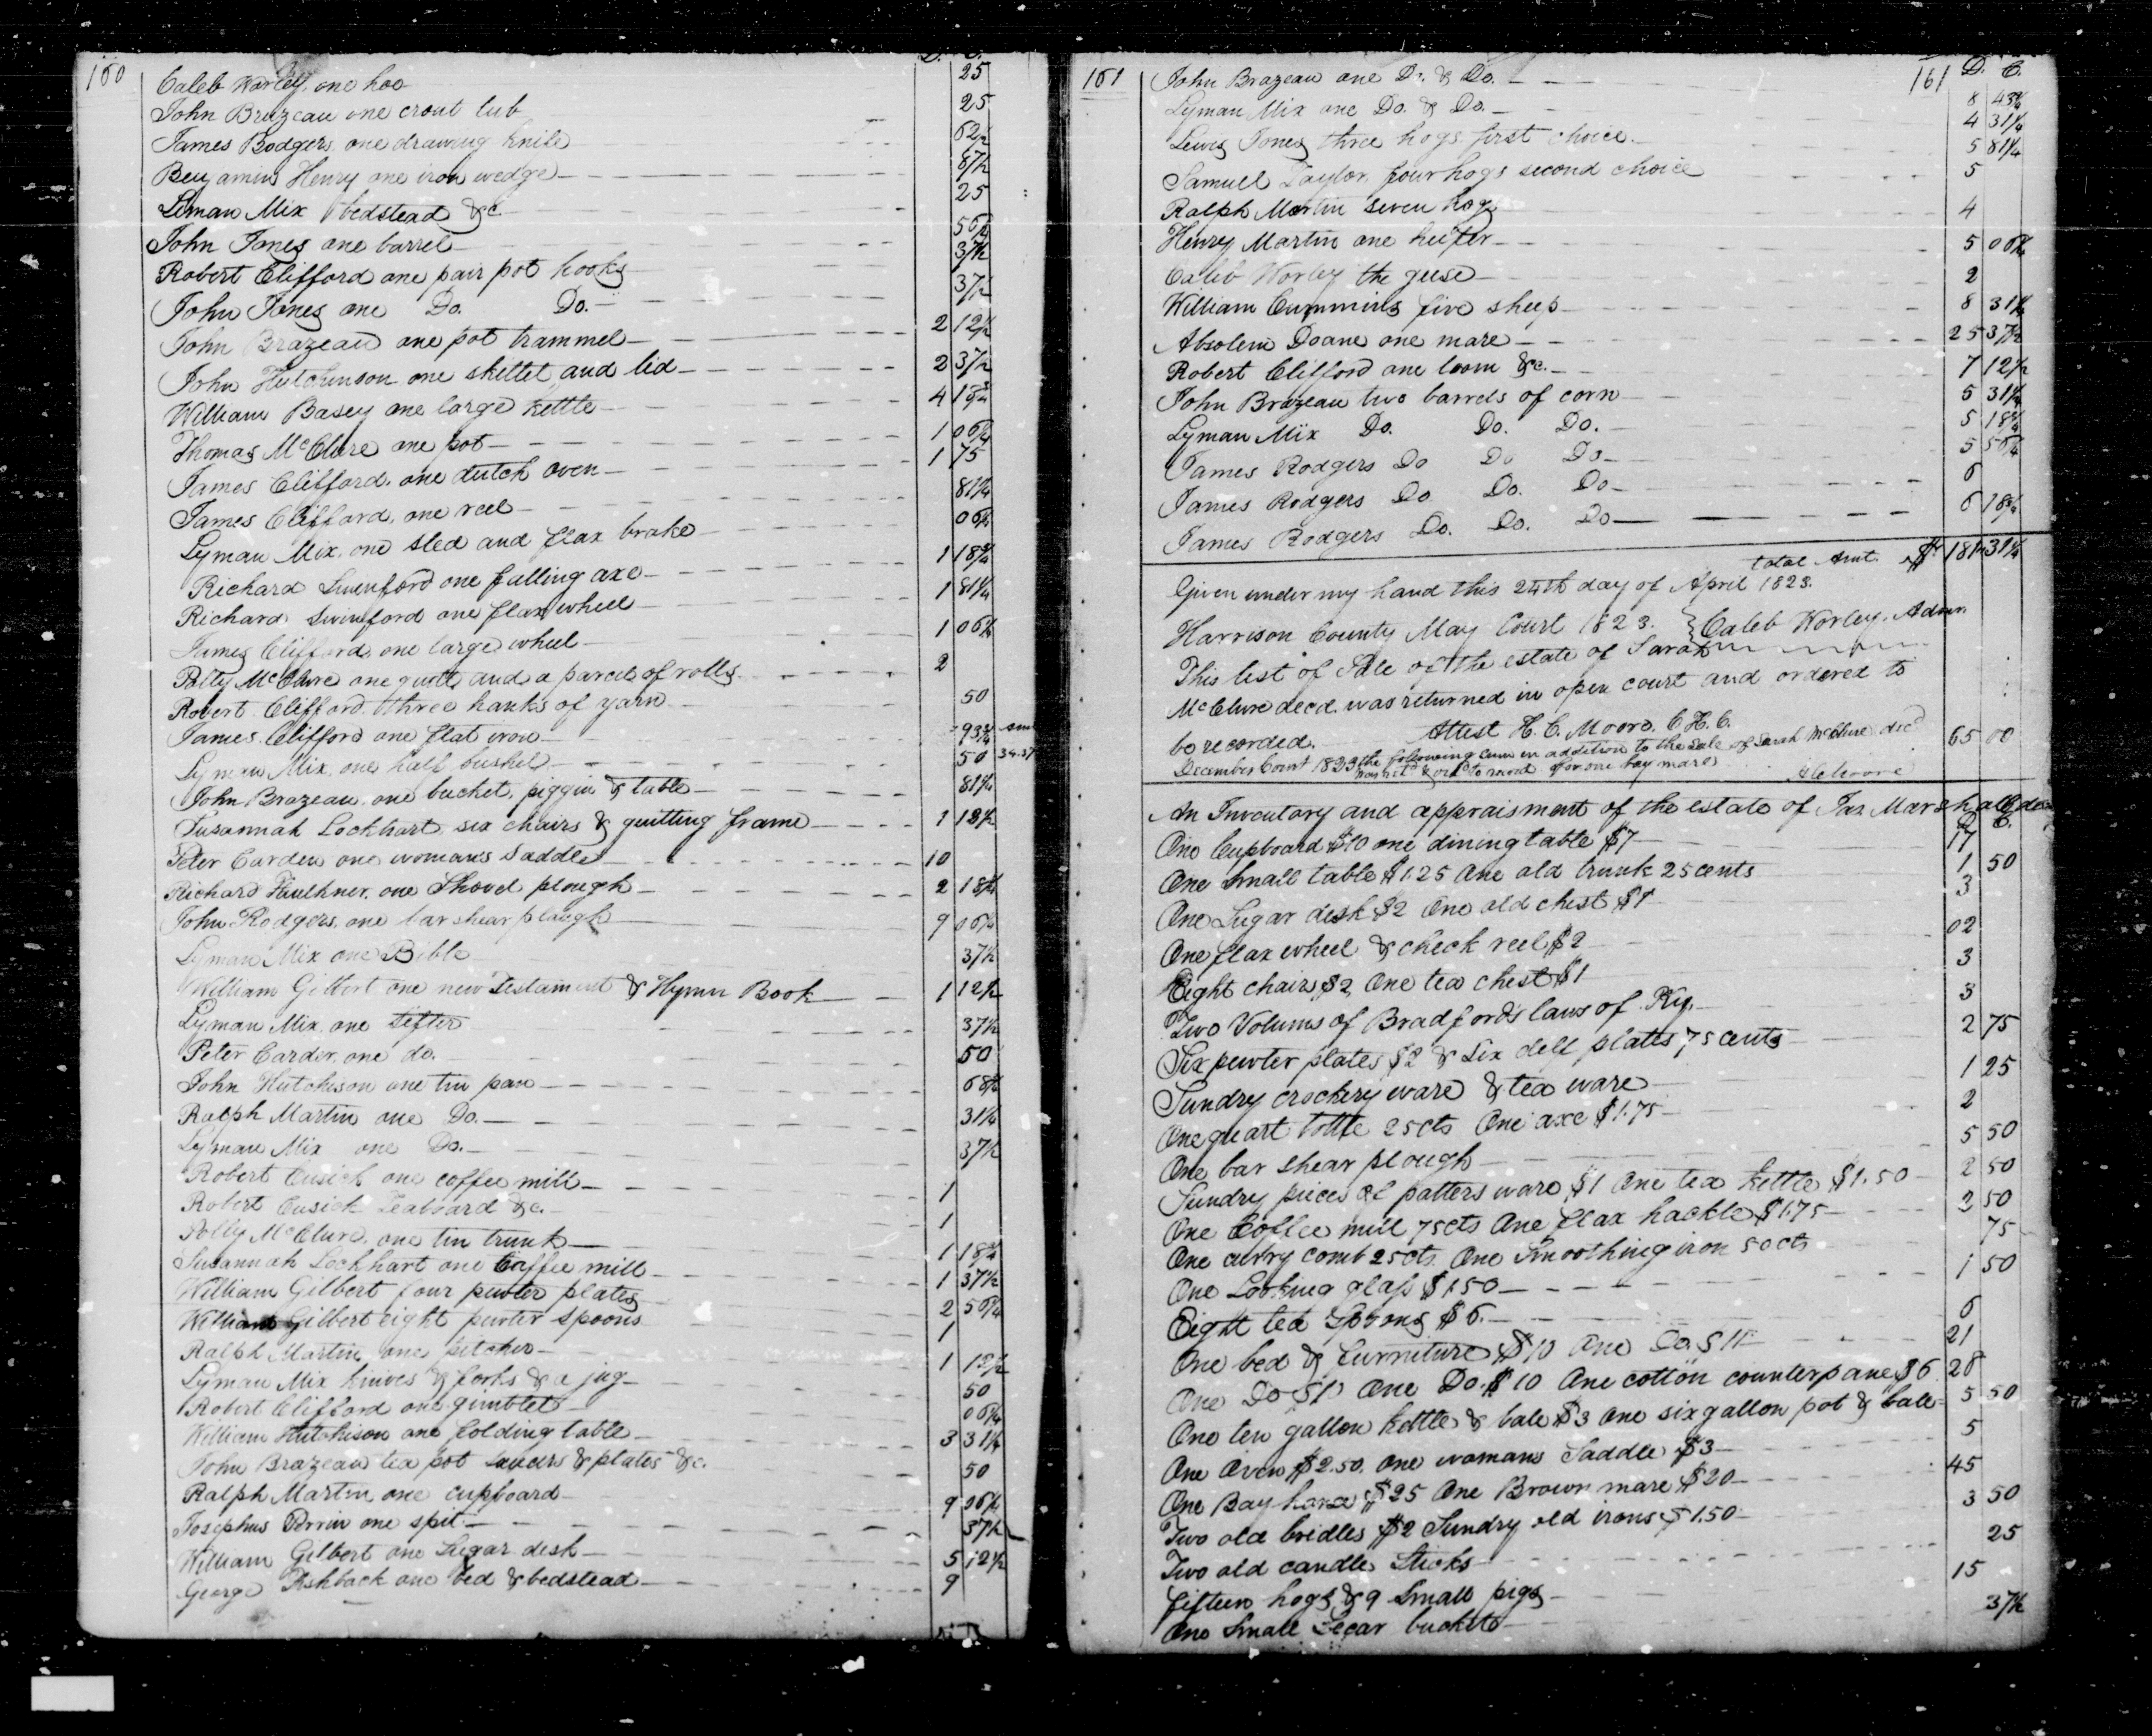 160 D. C.
Caleb Worley, one hoe 25
John Brazeau one crout tub 25
James Rodgers, one drawing knife 62½
Benjamin Henry one iron wedge 87½
Liman Mix bedstead &c. 25
John Jones one barrel 56¼
Robert Clifford one pair pot hooks 37½
John Jones one Do. Do. 37½
John Brazeau one pot trammel 2 12½
John Hutchinson one skillet and lid 2 37½
William Basey one large kettle 4 18¾
Thomas McClure one pot 1 06¼
James Clifford, one dutch oven 1 75
James Clifford, one reel 81¼
Lyman Mix, one sled and flax brake 06¼
Richard Swinford one falling axe 1 18¾
Richard Swinford one flax wheel 1 81¼
James Clifford, one large wheel 1 06¼
Polly McClure one quilt and a parcel of rolls 2
Robert Clifford three hanks of yarn 50
James Clifford one flat iron 93¾
Lyman Mix, one half bushel 50 34.37
John Brazeau, one bucket, piggin & table 81¼
Susannah Lockhart six chairs & quilting frame 1 12½
Peter Carder one womans Saddle 10
Richard Faulkner, one Shovel plough 2 18¾
John Rodgers, one bar shear plough 9 06¼
Lyman Mix one Bible 37½
William Gilbert one new Testament & Hymn Book 1 12½
Lyman Mix, one sifter 37½
Peter Carder, one do. 50
John Hutchison one tin pan 68¾
Ralph Martin one Do. 31¼
Lyman Mix one Do. 37½
Robert Cusick one coffee mill 1
Robert Cusick Teaboard &c. 1
Polly McClure, one tin trunk 1 18¾
Susannah Lockhart one Coffee mill 1 37½
William Gilbert four pewter plates 2 56¼
William Gilbert eight pewter spoons 1
Ralph Martin, one pitcher 1 12½
Lyman Mix knives & forks & a jug 50
Robert Clifford one gimblet 06¼
William Hutchison one folding table 3 31¼
John Brazeau tea pot saucers & plates &c. 50
Ralph Martin one cupboard 9 06¼
Josephus Perrin one spit 37½
William Gilbert one Sugar desk 5 12½
George Ashback one bed & bedstead 9
161 161 D. C.
John Brazeau one Do. & Do. 8 43¾
Lyman Mix one Do. & Do. 4 31¼
Lewis Jones three hogs first choice 5 81¼
Samuel Taylor, four hogs second choice 5
Ralph Martin seven hogs 4
Henry Martin one heifer 5 06¼
Caleb Worley the geese 2
William Cummins five sheep 8 31¼
Absolem Doane one mare 25 37½
Robert Clifford one loom &c. 7 12½
John Brazeau two barrels of corn 5 31¼
Lyman Mix Do. Do. Do. 5 18¾
James Rodgers Do Do Do 5 56¼
James Rodgers Do Do. Do 6
James Rodgers Do. Do. Do 6 18¾
total Amt. $ 181 31¼
Given under my hand this 24th day of April 1823.
Harrison County May Court 1823. } Caleb Worley. Admr.
This list of Sale of the estate of Sarah
McClure decd. was returned in open court and ordered to
be recorded. Attest H. C. Moore. C. H. C.
December Court 1823 the following sum in addition to the sale of Sarah McClure decd 65 00
was retd & ordd to record for one bay mare HCMoore
An Inventory and appraisment of the estate of Jas Marshall decd
D. C.
One Cupboard $10 one dining table $7 17
One Small table $1.25 One old trunk 25 cents 1 50
One Sugar desk $2 One old chest $1 3
One flax wheel & check reel $2 02
Eight chairs $2 One tea chest $1 3
Two Volums of Bradfords laws of Ky. 3
Six pewter plates $2 & Six delf platts 75 cents 2 75
Sundry crockery ware & tea ware 1 25
One quart bottle 25cts One axe $1.75 2
One bar shear plough 5 50
Sundry pieces of patters ware $1 One tea Kettle $1.50 2 50
One Coffee mill 75cts One flax hackle $1.75 2 50
One curry comb 25cts. One Smoothing iron 50cts 75
One Looking glass $1.50 1 50
Eight tea Spoons $6. 6
One bed & furniture $10 One Do. $11 21
One Do $12 One Do. $10 One cotton counterpane $6 28
One ten gallon kettle & bale $3 One six gallon pot & bale 5 50
One Oven $2.50. One womans Saddle $3 5
One Bay horse $25 One Brown mare $20 45
Two old bridles $2 Sundry old irons $1.50 3 50
Two old candle Sticks 25
Fifteen hogs & 9 Small pigs 15
One Small Cegar buckett 37½